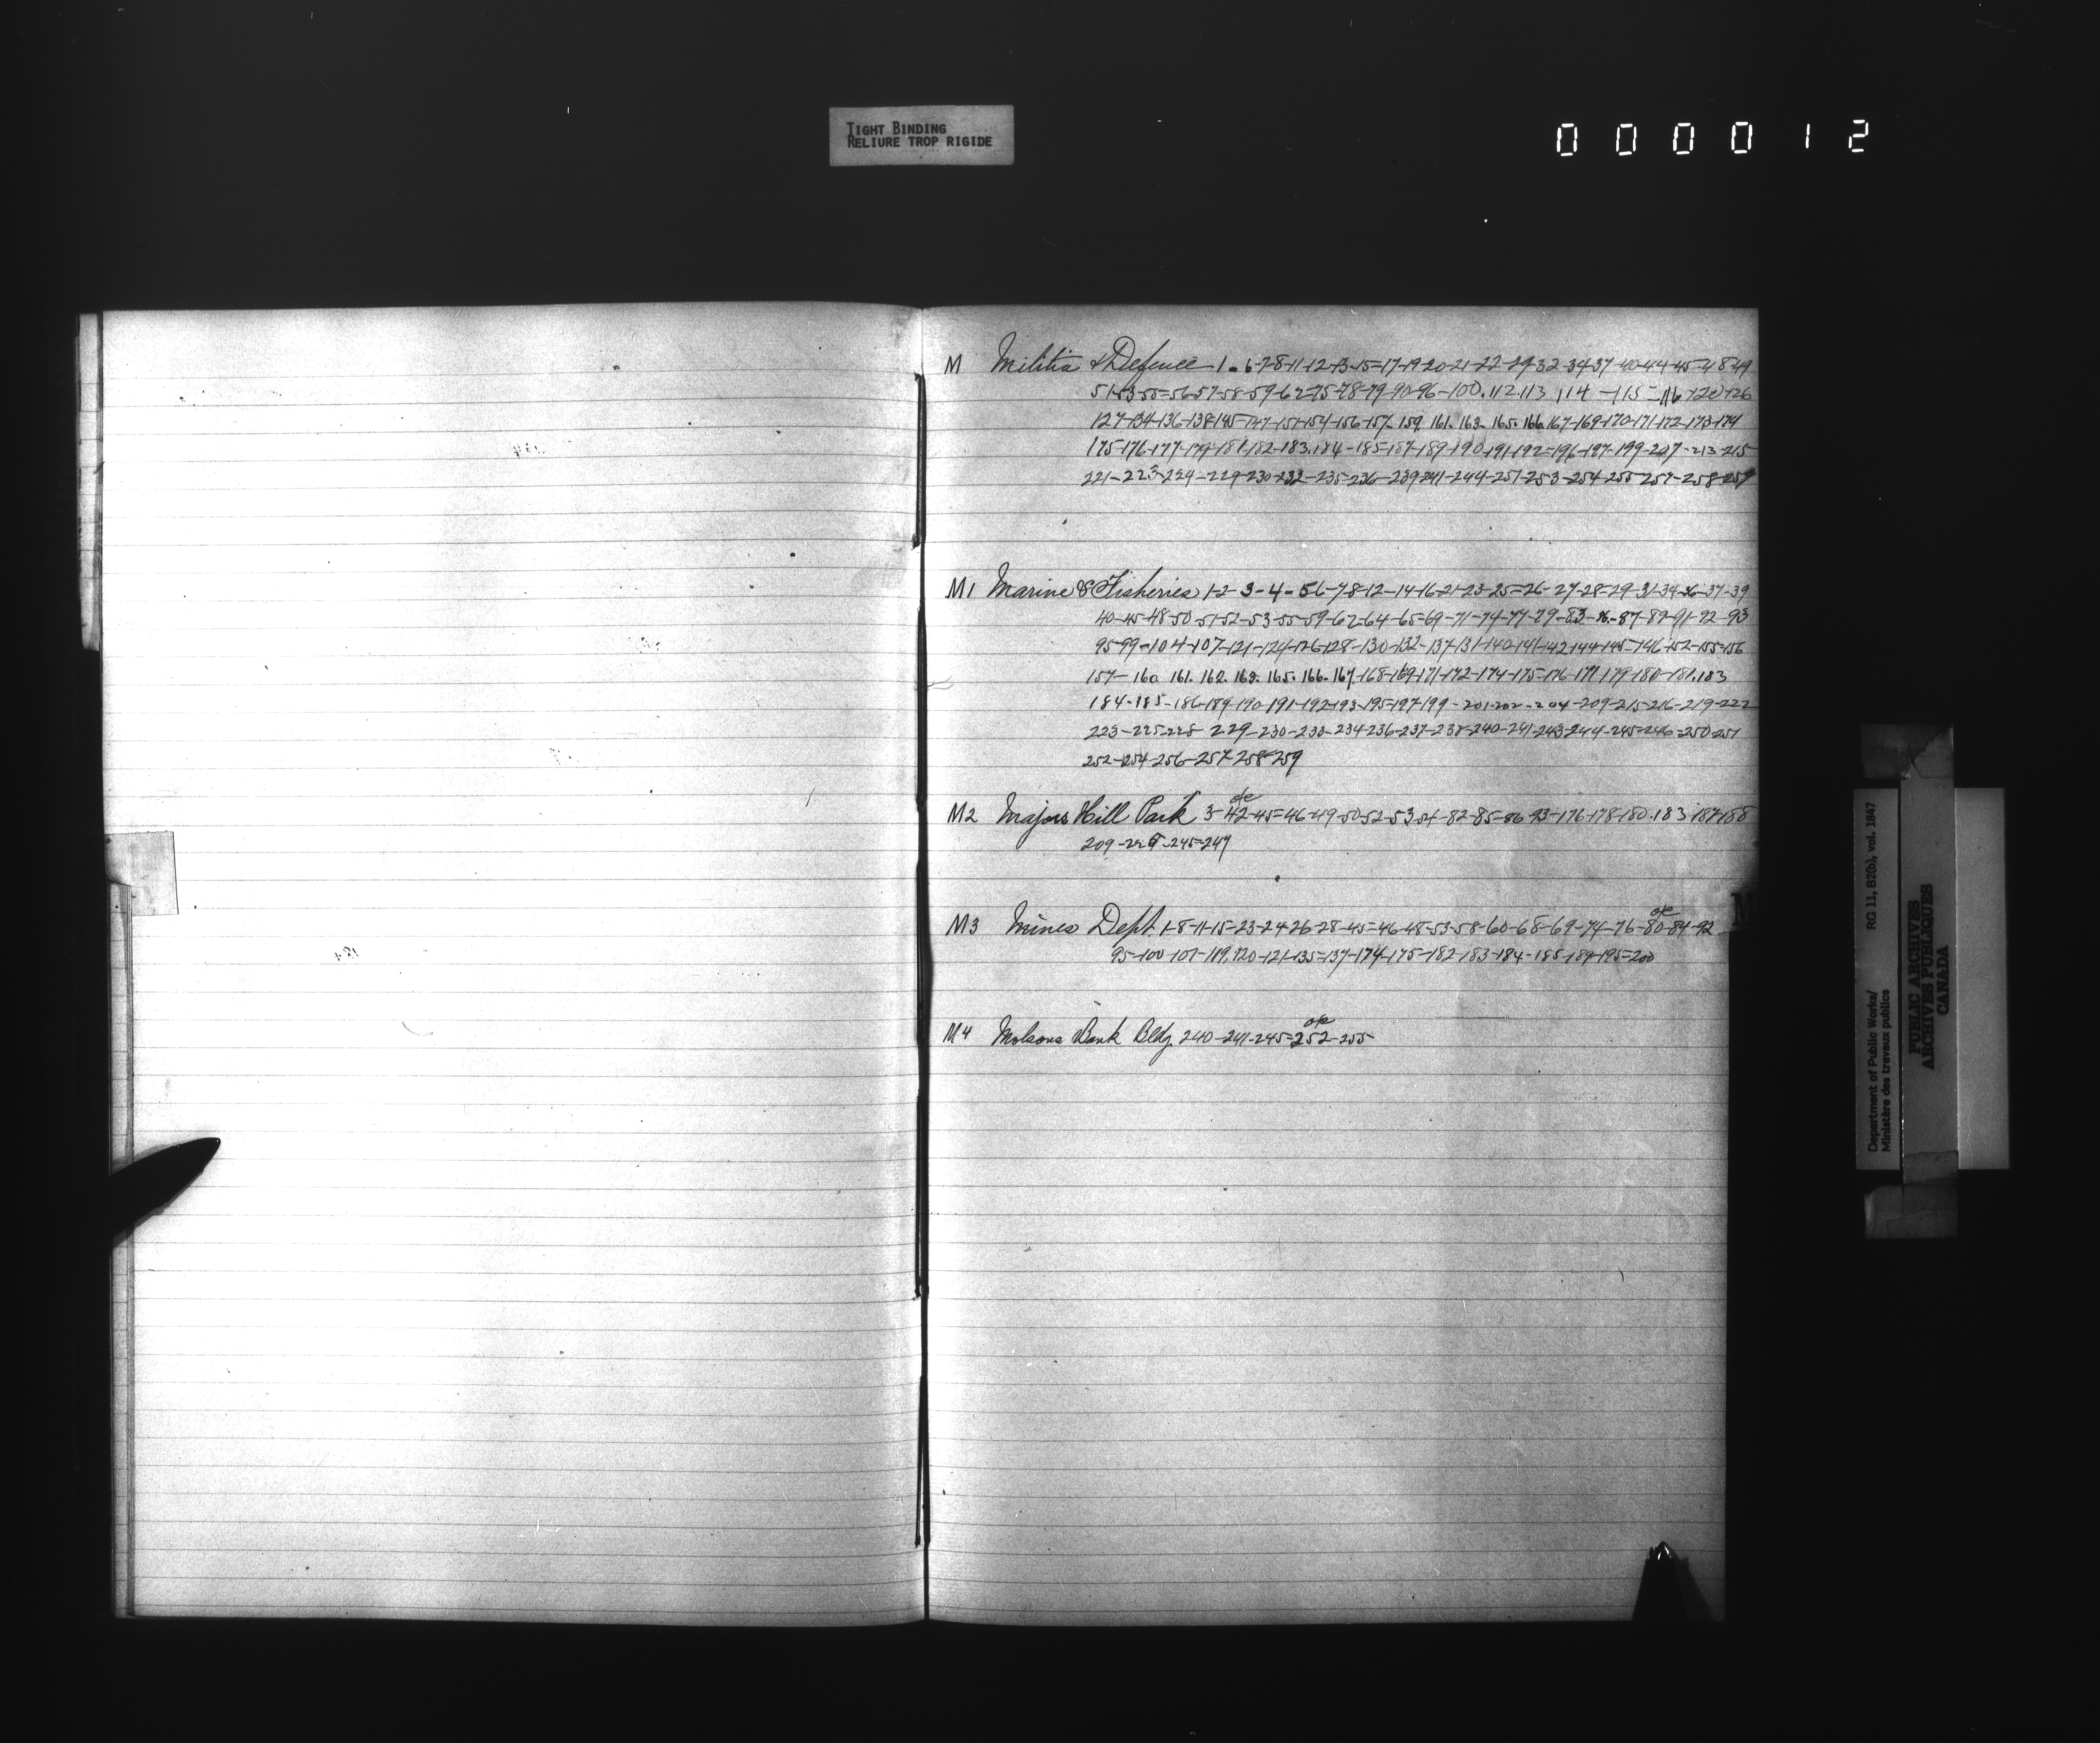 TIGHT BINDING
RELIURE TROP RIGIDE
000012
M Militia & Defence 1-6-7-8-11-12-13-15-17-19-20-21-22-29-32-34-37-40-44-45-48-49
51-53-55-56-57-58-59-62-75-78-79-90-96-100.112.113 114-115-116-120-126
127-134-136-138-145-147-151-154-156-157-159. 161. 163. 165. 166. 167-169-170-171-172-173-174
175-176-177-179-181-182-183.184-185-187-189-190-191-192-196-197-199-207-213-215
221-223-224-229-230-232-235-236-239-241-244-251-253-254-255-257-258-259
M1 Marine & Fisheries 1-2-3-4-5-6-7-8-12-14-16-21-23-25-26-27-28-29-31-34-36-37-39
40-45-48-50-51-52-53-55-59-62-64-65-69-71-74-77-79-83-86-87-89-91-92-93
95-99-104-107-121-124-126-128-130-132-137-131-140-141-142-144-145-146-152-155-156
157-160 161. 162. 163. 165. 166. 167. 168-169-171-172-174-175-176-177 179-180-181.183
184-185-186-189-190-191-192-193-195-197-199-201-202-204-209-215-216-219-222
223-225-228 229-230-233-234-236-237-238-240-241-243-244-245-246-250-251
252-254-256-257-258-259
M2 Majors Hill Park 3-42-45-46-49-50-52-53-54-82-85-86-93-176-178-180.183-187-188
209-229-245-247
M3 Mines Dept. 1-8-11-15-23-24-26-28-45-46-48-53-58-60-68-69-74-76-80-84-92
95-100-107-119.120-121-135-137-174-175-182-183-184-185-189-195-200
M4 Molsons Bank Bldg. 240-241-245-252-255
M
Department of Public Works/ RG 11, B2(b), vol. 1847
Ministère des travaux publics
PUBLIC ARCHIVES
ARCHIVES PUBLIQUES
CANADA